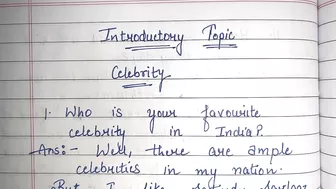 Introductory Topic
Celebrity
1. Who is your favourite
celebrity in India?
Ans:- Well, there are ample
celebrities in my nation.
But I like